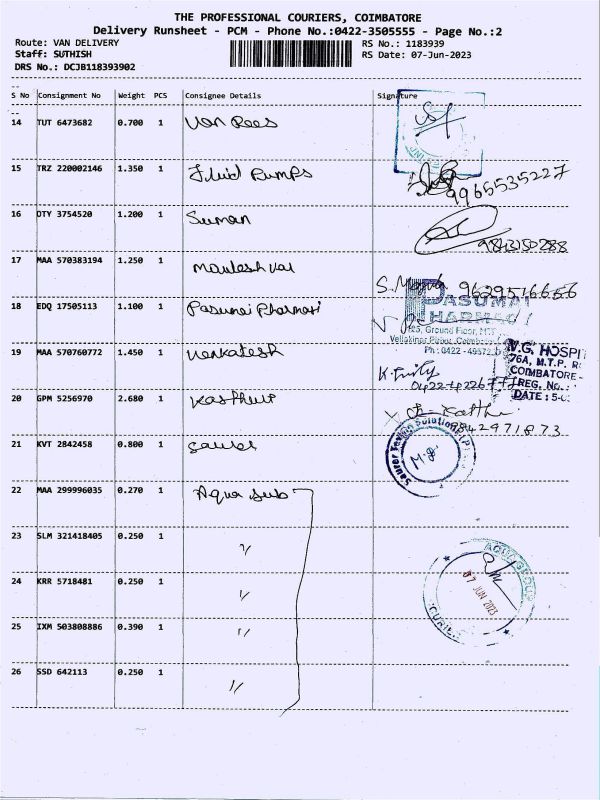 THE PROFESSIONAL COURIERS, COIMBATORE
Delivery Runsheet - PCM - Phone No.:0422-3505555 - Page No.:2
Route: VAN DELIVERY
RS No.: 1183939
Staff: SUTHISH
RS Date: 07-Jun-2023
DRS No.: DCJB118393902
S No Consignment No Weight PCS Consignee Details Signature
14 TUT 6473682 0.700 1 Van Rees
15 TRZ 220002146 1.350 1 Fluid Pumps
9965535227
16 OTY 3754520 1.200 1 Suman
9843150288
17 MAA 570383194 1.250 1
9629516656
18 EDQ 17505113 1.100 1 Pasumai Pharmasi
PASUMAI
PHARMACY
Ground Floor,
Ph : 0422 -
19 MAA 570760772 1.450 1 Venkatesh
V.G. HOSPI
76A, M.T.P. R
COIMBATORE-
REG. No.:
DATE : 5-
20 GPM 5256970 2.680 1
9842971873
21 KVT 2842458 0.800 1
Saurer Texing Solutions (P)
22 MAA 299996035 0.270 1 Aqua Sub
23 SLM 321418405 0.250 1 "
24 KRR 5718481 0.250 1 "
25 IXM 503808886 0.390 1 "
26 SSD 642113 0.250 1 "
AQUA GROUP
07 JUN 2023
COURIER